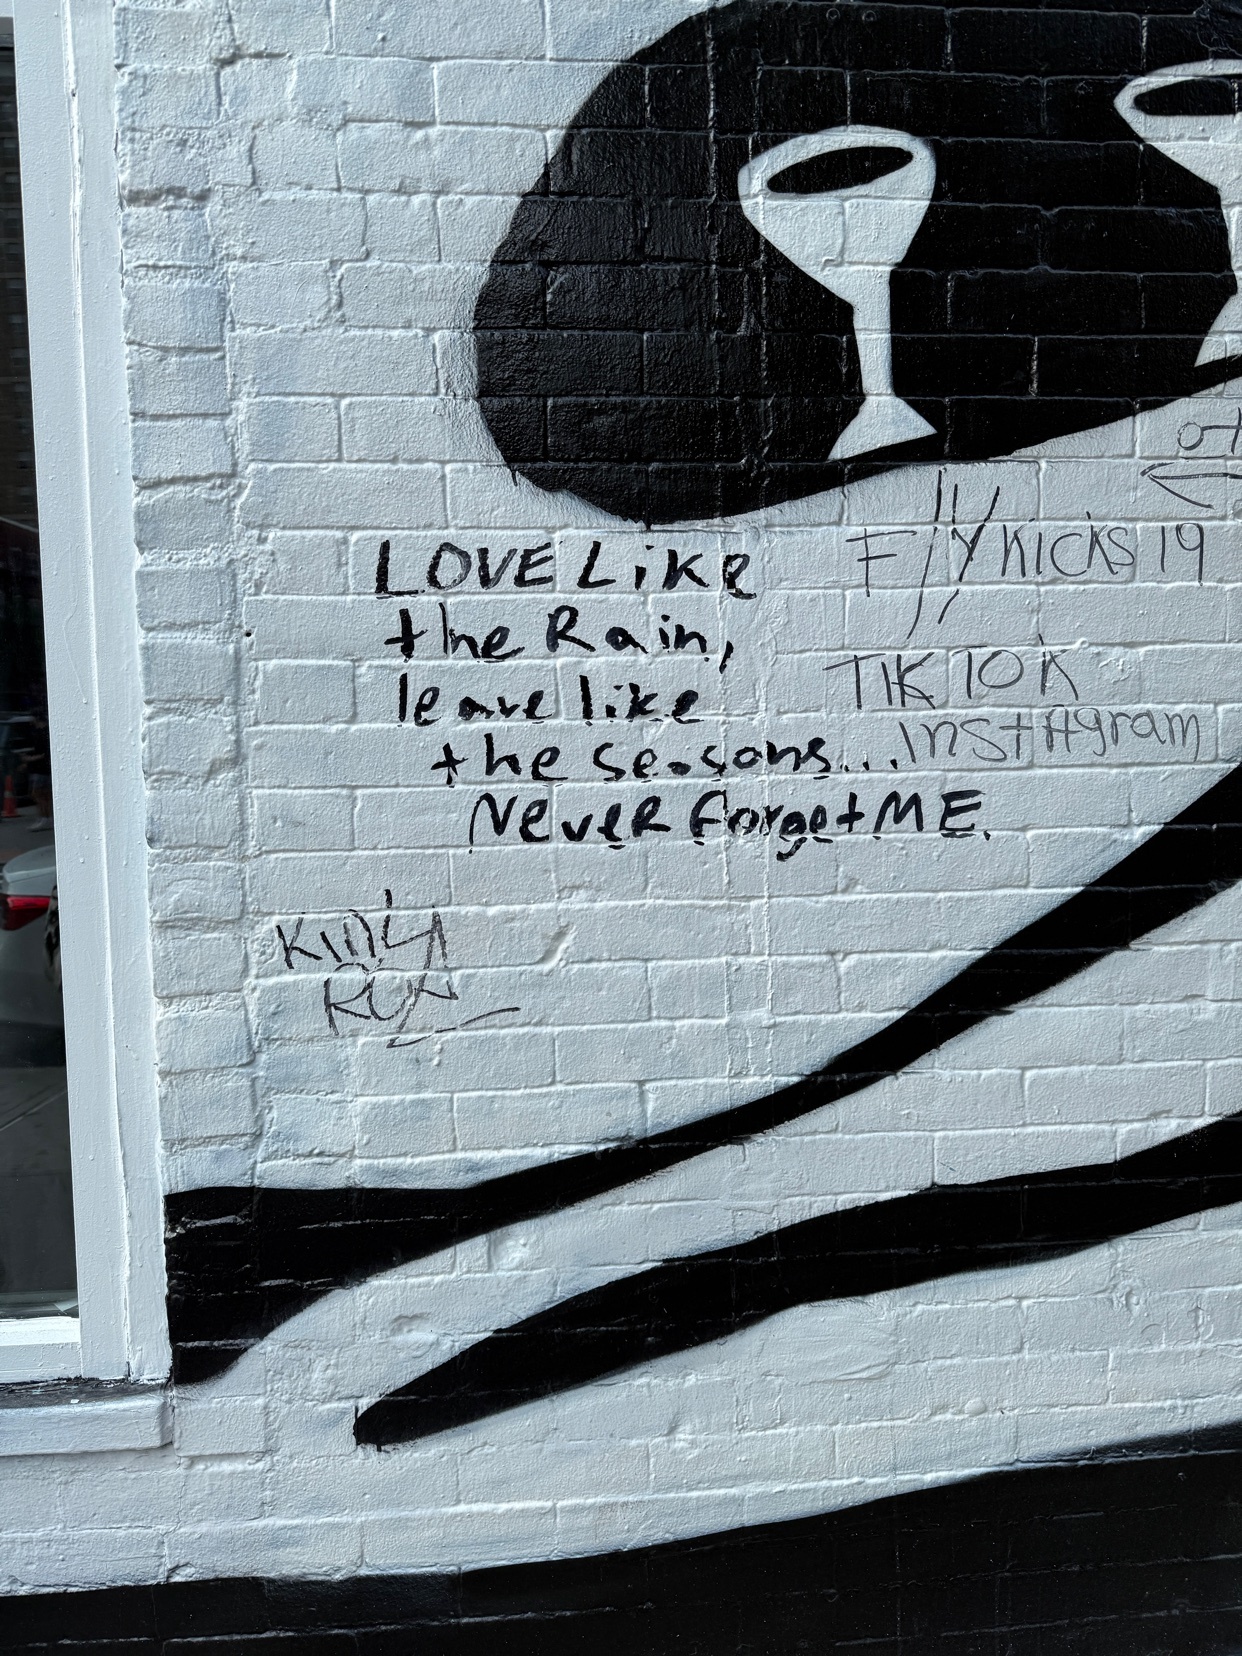 LOVE Like
the Rain,
leave like
the seasons...
Never forget ME.
FlyKicks19
TIKTOK
instAgram